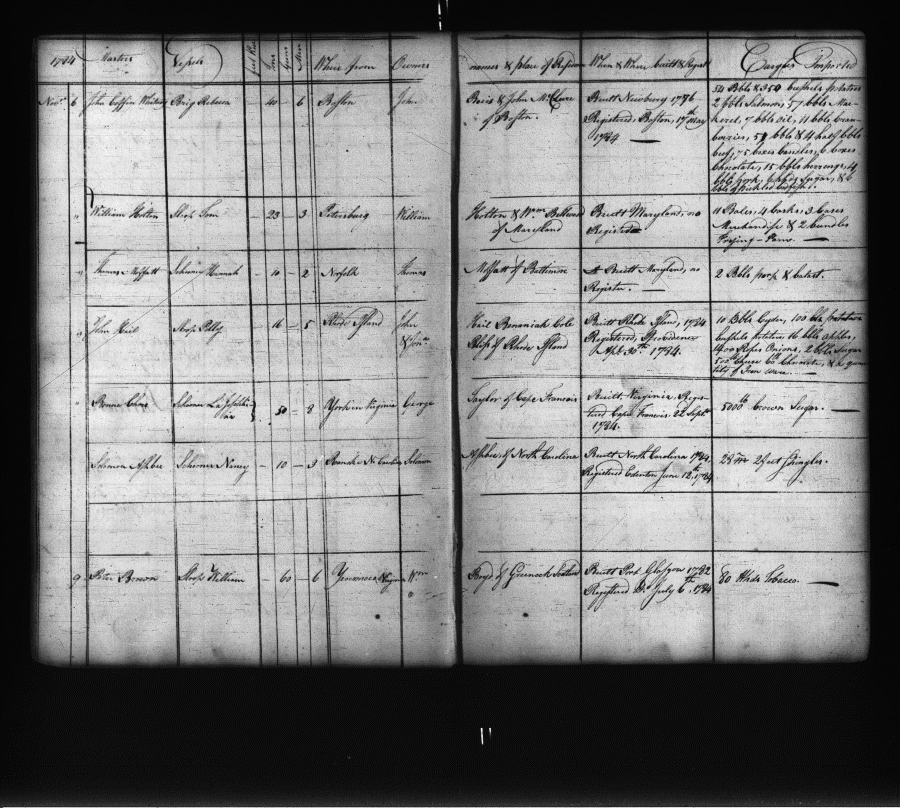 1784 Masters Vessels Tons Guns Men Where from Owners names & place of Residence When & Where built & Regist Cargoes Imported
Novr. 6 John Coffin Whitney Brig Rebecca — 40 — 6 Boston John
Bros & John McClure Built Newbury 1776
of Boston. Registered, Boston, 17th May
1784 —
54 Bbls & 350 bushels potatoes
2 bbls Salmon, 57 bbls Mac-
kerel, 7 bbls oil, 11 bbls cran-
berries, 59 bbls & 4 half bbls
beef, 75 boxes Candles, 6 boxes
Chocolate, 15 bbls herrings, 4
bbls pork, Sugar, & 6
bbls of pickled
" William Hotton Sloop — 23 — 3 Petersburg William
Hotton & Wm
of Maryland
Built Maryland, no
Registered
11 Bales, 4 casks, 3 cases
Merchandise & 2 bundles
Frying-Pans. —
" Thomas Moffatt Schooner Hannah — 10 — 2 Norfolk Thomas
Moffatt of Baltimore
Built Maryland, no
Register. —
2 Bbls & ballast.
" John Keil Sloop Polly — 16 — 5 Rhode Island John
& Jona.
Keil Benaniah Cole
of Rhode Island
Built Rhode Island, 1784
Registered, Providence
Septr 30th, 1784.
10 Bbls Cyder, 100
bushels potatoes 16 bbls apples,
1400 Ropes Onions, 2 bbls Sugar
500 lb Cheese
tity of Iron ware. —
" Schooner — 50 — 8 York in Virginia George
Taylor of Cape Francois
Built Virginia, Regis-
tered Cape Francois 22 Septr
1784.
5000 lb brown Sugar. —
Solomon Ashbee Schooner Nancy — 10 — 3 Roanoke No. Carolina Solomon
Ashbee, of North Carolina
Built North Carolina 1784,
Registered Edenton June 12th, 1784
28 M 2 feet Shingles.
9 Peter Brown Sloop William — 60 — 6 Virginia Wm
Boyd of Greenock Scotland
Built Port Glasgow 1782
Registered Do. July 6th, 1784
80 Hhds Tobacco. —